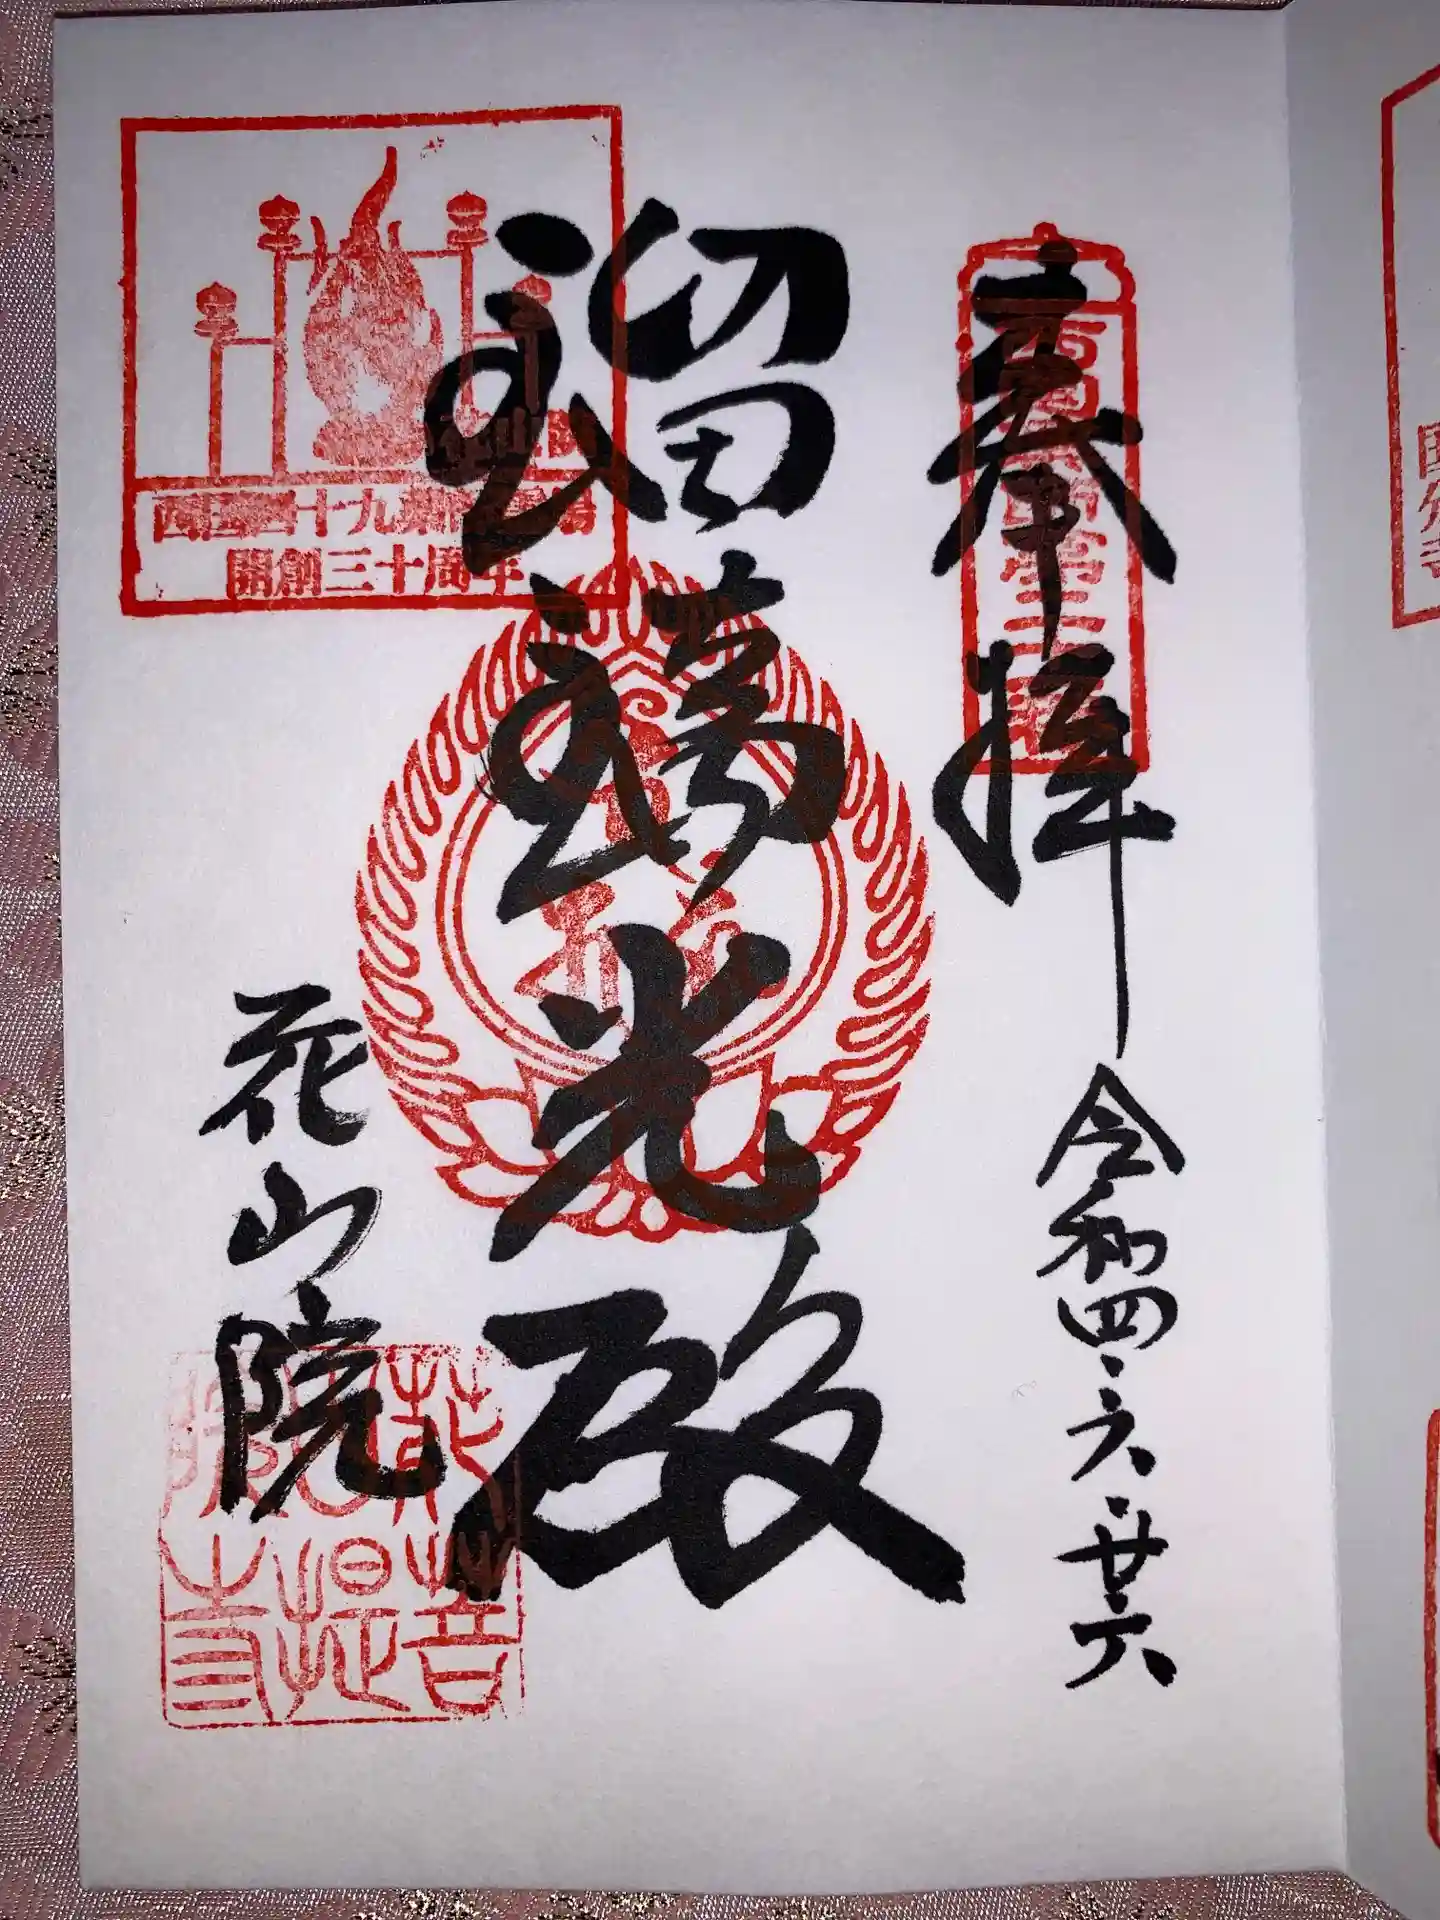 奉拝
令和四・六・廿六
瑠璃光殿
花山院
西国四十九薬師霊場
開創三十周年
花山院菩提寺
国分寺